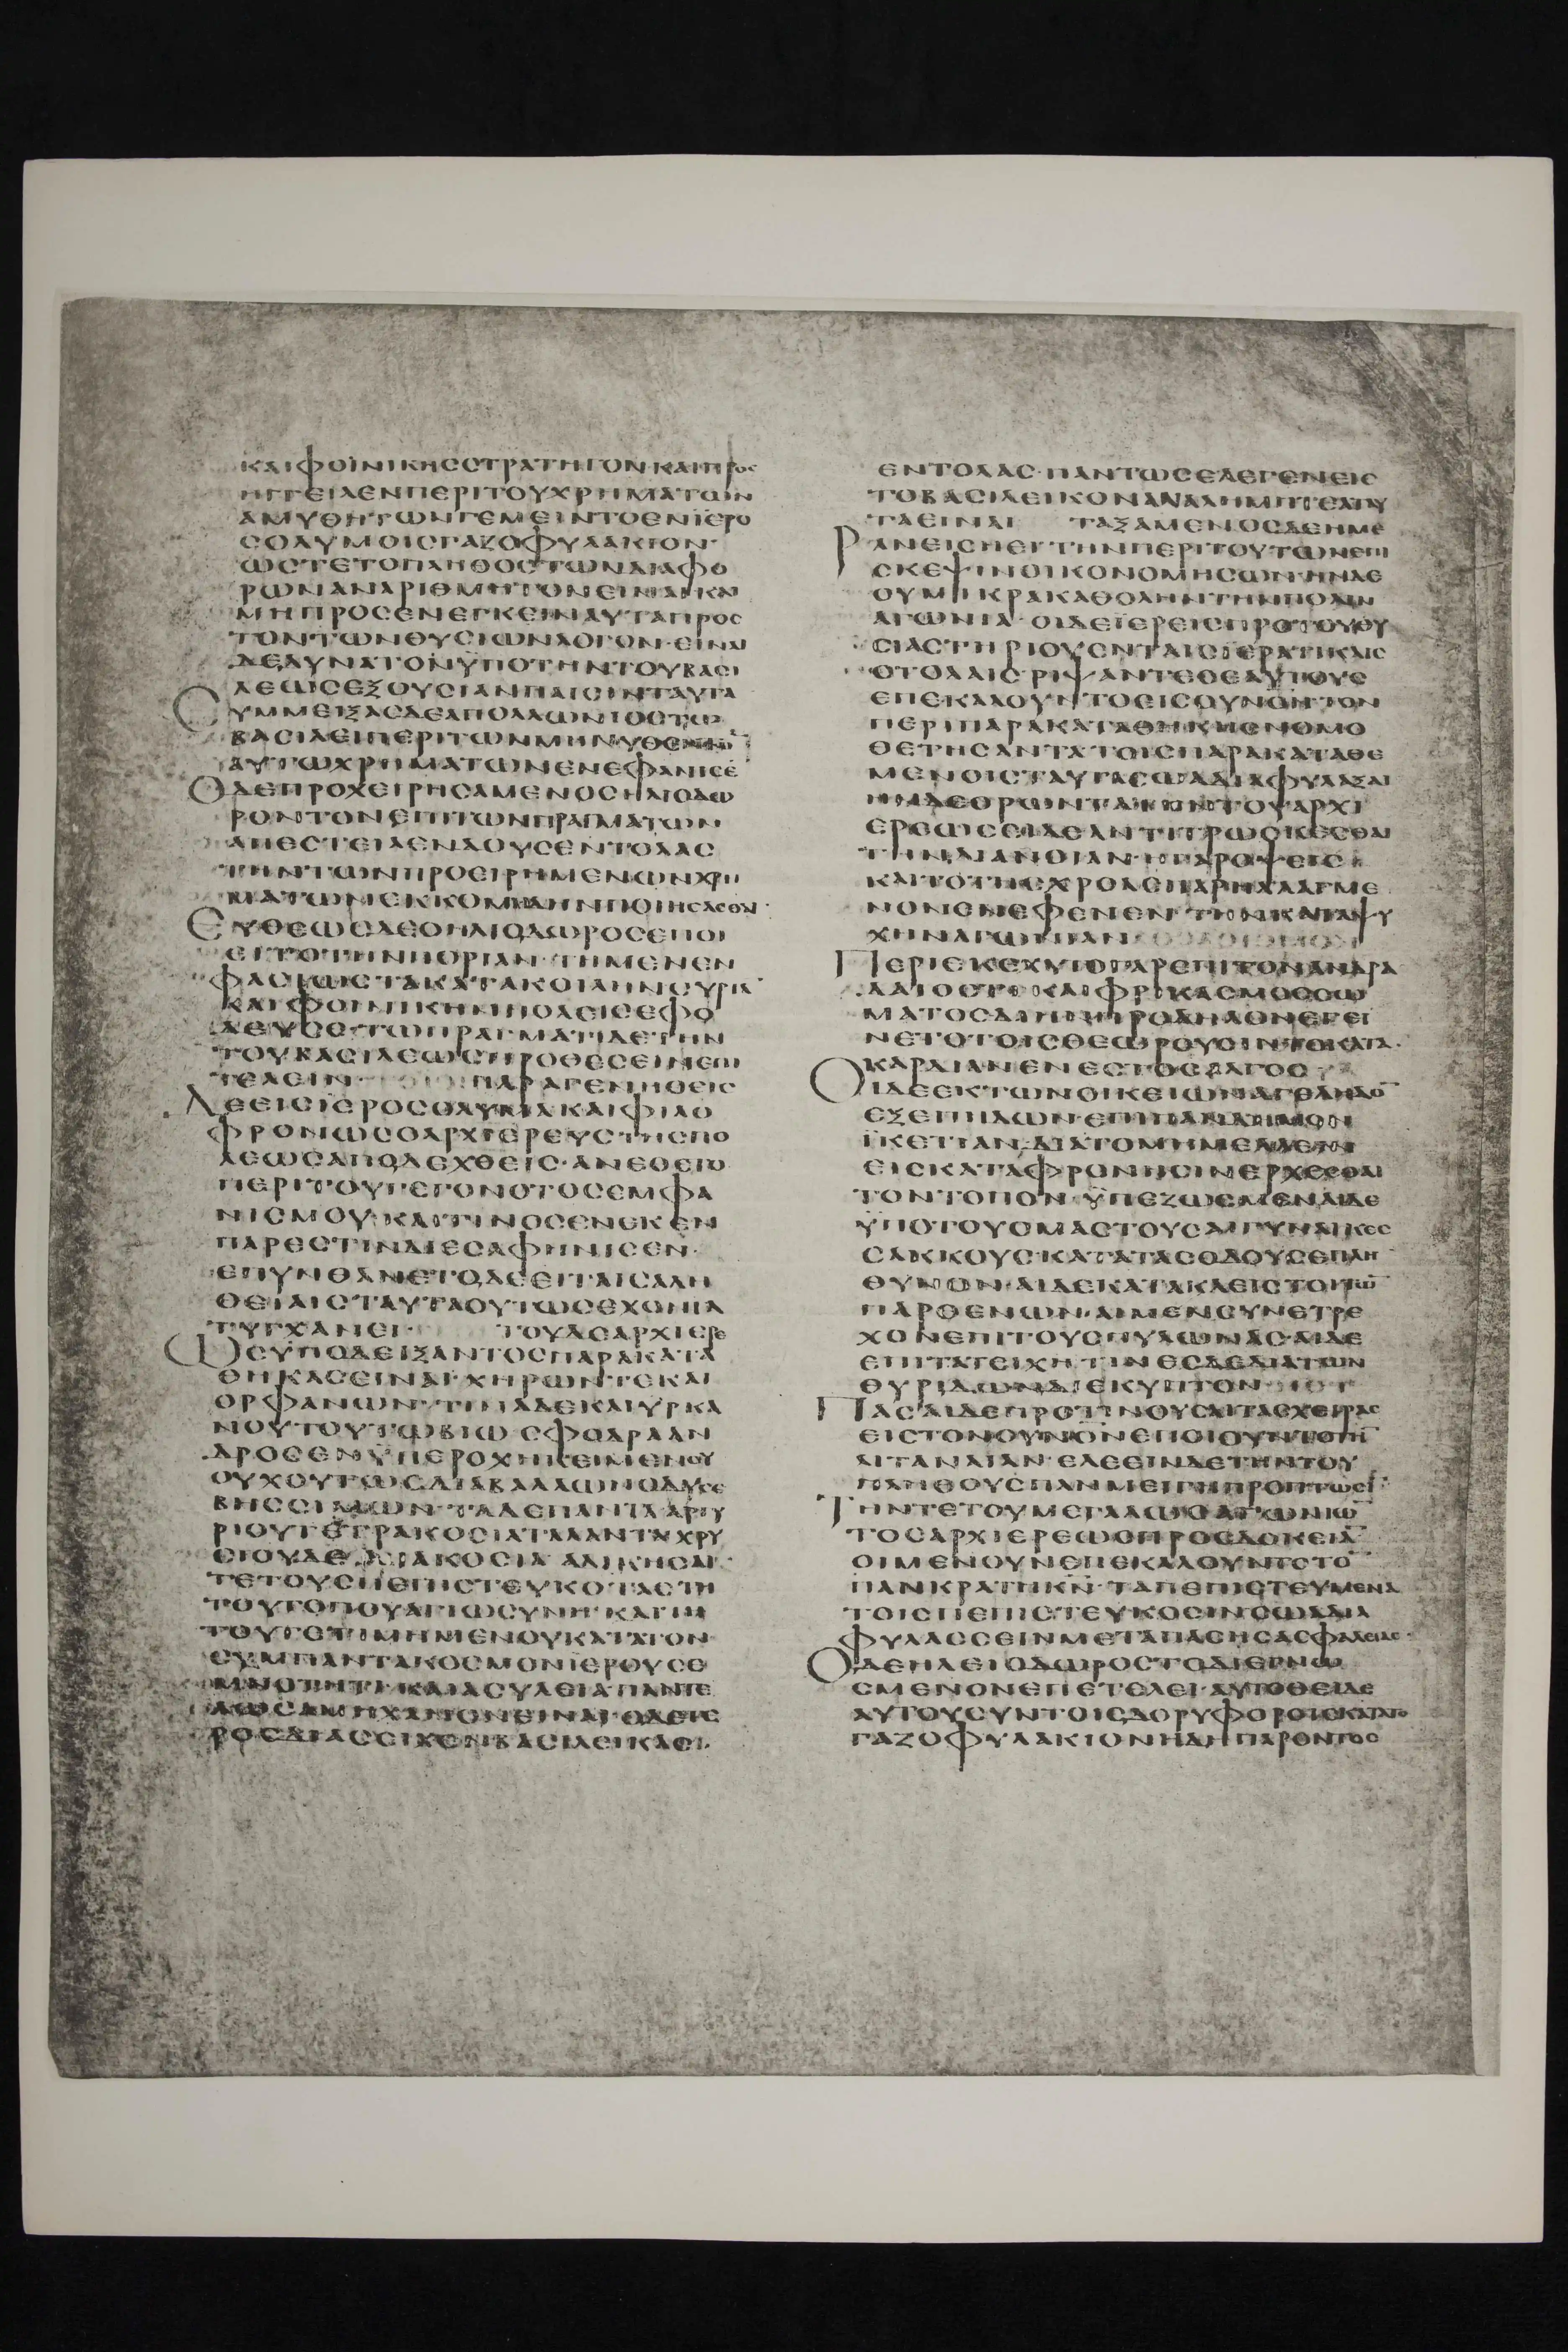 ΚΑΙΦΟΙΝΙΚΗССΤΡΑΤΗΓΟΝ·ΚΑΙΠΡΟС
ΗΓΓΕΙΛΕΝΠΕΡΙΤΟΥΧΡΗΜΑΤΩΝ
ΑΜΥΘΗΤΩΝΓΕΜΕΙΝΤΟΕΝΪΕΡΟ
СΟΛΥΜΟΙСΓΑΖΟΦΥΛΑΚΙΟΝ·
ΩСΤΕΤΟΠΛΗΘΟСΤΩΝΔΙΑΦΟ
ΡΩΝΑΝΑΡΙΘΜΗΤΟΝΕΙΝΑΙΚΑΙ
ΜΗΠΡΟСΕΝΕΓΚΕΙΝΑΥΤΑΠΡΟС
ΤΟΝΤΩΝΘΥСΙΩΝΛΟΓΟΝ·ΕΙΝΑΙ
ΔΕΔΥΝΑΤΟΝΫΠΟΤΗΝΤΟΥΒΑСΙ
ΛΕΩСΕΞΟΥСΙΑΝΠΑΙСΙΝΤΑΥΤΑ
СΥΜΜΕΙΞΑСΔΕΑΠΟΛΛΩΝΙΟСΤΩ
ΒΑСΙΛΕΙΠΕΡΙΤΩΝΜΗΝΥΘΕΝΤΩ̅
ΑΥΤΩΧΡΗΜΑΤΩΝΕΝΕΦΑΝΙСΕ̅
ΟΔΕΠΡΟΧΕΙΡΗСΑΜΕΝΟСΗΛΙΟΔΩ
ΡΟΝΤΟΝΕΠΙΤΩΝΠΡΑΓΜΑΤΩΝ
ΑΠΕСΤΕΙΛΕΝΔΟΥСΕΝΤΟΛΑС
ΤΗΝΤΩΝΠΡΟΕΙΡΗΜΕΝΩΝΧΡΗ
ΜΑΤΩΝΕΚΚΟΜΙΔΗΝΠΟΙΗСΑСΘΑΙ·
ΕΥΘΕΩСΔΕΟΗΛΙΟΔΩΡΟСΕΠΟΙ
ΕΙΤΟΤΗΝΠΟΡΙΑΝ·ΤΗΜΕΝΕΝ
ΦΑСΙΩСΤΑΚΑΤΑΚΟΙΛΗΝСΥΡΙΑ̅
ΚΑΙΦΟΙΝΙΚΗΝΠΟΛΕΙСΕΦΟ
ΔΕΥСΕ·ΤΩΠΡΑΓΜΑΤΙΔΕΤΗΝ
ΤΟΥΒΑСΙΛΕΩСΠΡΟΘΕСΕΙΝΕΠΙ
ΤΕΛΕΙΝ ΠΑΡΑΓΕΝΗΘΕΙС
ΔΕΕΙСΙΕΡΟСΟΛΥΜΑΚΑΙΦΙΛΟ
ΦΡΟΝΩСΟΑΡΧΙΕΡΕΥСΤΗСΠΟ
ΛΕΩСΑΠΟΔΕΧΘΕΙС·ΑΝΕΘΕΤΟ
ΠΕΡΙΤΟΥΓΕΓΟΝΟΤΟСΕΜΦΑ
ΝΙСΜΟΥ·ΚΑΙΤΙΝΟСΕΝΕΚΕΝ
ΠΑΡΕСΤΙΝΔΙΕСΑΦΗΝΙСΕΝ·
ΕΠΥΝΘΑΝΕΤΟΔΕΕΙΤΑΙСΑΛΗ
ΘΕΙΑΙСΤΑΥΤΑΟΥΤΩСΕΧΟΝΤΑ
ΤΥΓΧΑΝΕΙ· ΤΟΥΔΕΑΡΧΙΕΡΕ
ΩСΫΠΟΔΕΙΞΑΝΤΟСΠΑΡΑΚΑΤΑ
ΘΗΚΑСΕΙΝΑΙ·ΧΗΡΩΝΤΕΚΑΙ
ΟΡΦΑΝΩΝ·ΤΙΝΑΔΕΚΑΙΥΡΚΑ
ΝΟΥΤΟΥΤΩΒΙΩСΦΟΔΡΑΑΝ
ΔΡΟСΕΝΫΠΕΡΟΧΗΚΕΙΜΕΝΟΥ
ΟΥΧΟΥΤΩСΔΙΑΒΑΛΛΩΝΟΔΥССΕ
ΒΗССΙΜΩΝ·ΤΑΔΕΠΑΝΤΑΑΡΓΥ
ΡΙΟΥΤΕΤΡΑΚΟСΙΑΤΑΛΑΝΤΑΧΡΥ
СΙΟΥΔΕΔΙΑΚΟСΙΑ ΑΔΙΚΗСΑΙ·
ΤΕΤΟΥСΠΕΠΙСΤΕΥΚΟΤΑСΤΗ
ΤΟΥΤΟΠΟΥΑΓΙΩСΥΝΗ·ΚΑΙΤΗ
ΤΟΥΤΕΤΙΜΗΜΕΝΟΥΚΑΤΑΤΟΝ
СΥΜΠΑΝΤΑΚΟСΜΟΝΙΕΡΟΥСΕ
ΜΝΟΤΗΤΙ·ΚΑΙΑСΥΛΕΙΑΠΑΝΤΕ
ΛΩСΑΜΗΧΑΝΟΝΕΙΝΑΙ·ΟΔΕΤΕ
ΡΟСΔΙΑСΕΙΧΕΝΒΑСΙΛΕΙΚΑСΙ·
ΕΝΤΟΛΑС·ΠΑΝΤΩСΕΛΕΓΕΝΕΙС
ΤΟΒΑСΙΛΕΙΚΟΝΑΝΑΛΗΜΠΤΕΑΤΑΥ
ΤΑΕΙΝΑΙ ΤΑΞΑΜΕΝΟСΔΕΗΜΕ
ΡΑΝΕΙСΗΕΙΤΗΝΠΕΡΙΤΟΥΤΩΝΕΠΙ
СΚΕΨΙΝΟΙΚΟΝΟΜΗСΩΝ·ΗΝΔΕ
ΟΥΜΙΚΡΑΚΑΘΟΛΗΝΤΗΝΠΟΛΙΝ
ΑΓΩΝΙΑ·ΟΙΔΕΪΕΡΕΙСΠΡΟΤΟΥΘΥ
СΙΑСΤΗΡΙΟΥΕΝΤΑΙСΪΕΡΑΤΙΚΑΙС
СΤΟΛΑΙСΡΙΨΑΝΤΕСΕΑΥΤΟΥС
ΕΠΕΚΑΛΟΥΝΤΟΕΙСΟΥΝΟΝΤΟΝ
ΠΕΡΙΠΑΡΑΚΑΤΑΘΗΚΗСΝΟΜΟ
ΘΕΤΗСΑΝΤΑΤΟΙСΠΑΡΑΚΑΤΑΘΕ
ΜΕΝΟΙСΤΑΥΤΑСΩΑΔΙΑΦΥΛΑΞΑΙ
ΗΝΔΕΟΡΩΝΤΑΤΗΝΤΟΥΑΡΧΙ
ΕΡΕΩСΕΙΔΕΑΝΤΙΤΡΩСΚΕСΘΑΙ
ΤΗΝΔΙΑΝΟΙΑΝ·ΗΓΑΡΟΨΕΙС
ΚΑΙΤΟΤΗСΧΡΟΑСΠΑΡΗΛΛΑΓΜΕ
ΝΟΝΕΝΕΦΕΝΕΝΤΗΝΚΑΤΑΨΥ
ΧΗΝΑΓΩΝΙΑΝ
ΠΕΡΙΕΚΕΧΥΤΟΓΑΡΕΠΙΤΟΝΑΝΔΡΑ
ΔΑΙΟСΤΙ·ΚΑΙΦΡΙΚΑСΜΟССΩ
ΜΑΤΟСΔΙΩΝΠΡΟΔΗΛΟΝΕΓΕΙ
ΝΕΤΟΤΟΙСΘΕΩΡΟΥСΙΝΤΟΚΑΤΑ·
ΚΑΡΔΙΑΝΕΝΕСΤΟСΑΛΓΟС
ΟΙΔΕΕΚΤΩΝΟΙΚΕΙΩΝΑΓΕΛΗΔΟ̅
ΕΞΕΠΗΔΩΝ·ΕΠΙΠΑΝΔΗΜΟΝ
ΪΚΕΤΙΑΝ·ΔΙΑΤΟΜΗΜΕΛΛΕΙΝ
ΕΙСΚΑΤΑΦΡΟΝΗСΙΝΕΡΧΕСΘΑΙ
ΤΟΝΤΟΠΟΝ·ΫΠΕΖΩСΜΕΝΑΙΔΕ
ΫΠΟΤΟΥСΜΑСΤΟΥСΑΙΓΥΝΑΙΚΕС
СΑΚΚΟΥСΚΑΤΑΤΑСΟΔΟΥСΕΠΛΗ
ΘΥΝΟΝ·ΑΙΔΕΚΑΤΑΚΛΕΙСΤΟΙΤΩ̅
ΠΑΡΘΕΝΩΝ·ΑΙΜΕΝСΥΝΕΤΡΕ
ΧΟΝΕΠΙΤΟΥСΠΥΛΩΝΑС·ΑΙΔΕ
ΕΠΙΤΑΤΕΙΧΗΤΙΝΕСΔΕΔΙΑΤΩΝ
ΘΥΡΙΔΩΝΔΙΕΚΥΠΤΟΝ
ΠΑСΑΙΔΕΠΡΟΤΙΝΟΥСΑΙΤΑСΧΕΙΡΑС
ΕΙСΤΟΝΟΥΝΟΝΕΠΟΙΟΥΝΤΟΤΗ̅
ΛΙΤΑΝΙΑΝ·ΕΛΕΕΙΝΔΕΤΗΝΤΟΥ
ΠΛΗΘΟΥСΠΑΝΜΕΙΓΗΠΡΟΠΤΩСΙ̅
ΤΗΝΤΕΤΟΥΜΕΓΑΛΩСΑΓΩΝΙΩ̅
ΤΟСΑΡΧΙΕΡΕΩСΠΡΟСΔΟΚΕΙΑ̅
ΟΙΜΕΝΟΥΝΕΠΕΚΑΛΟΥΝΤΟΤΟ̅
ΠΑΝΚΡΑΤΗΚΝ̅·ΤΑΠΕΠΙСΤΕΥΜΕΝΑ
ΤΟΙСΠΕΠΙСΤΕΥΚΟСΙΝСΩΑΔΙΑ
ΦΥΛΑССΕΙΝΜΕΤΑΠΑСΗСΑСΦΑΛΕΙΑС·
ΟΔΕΗΛΕΙΟΔΩΡΟСΤΟΔΙΕΓΝΩ
СΜΕΝΟΝΕΠΕΤΕΛΕΙ·ΑΥΤΟΘΕΙΔΕ
ΑΥΤΟΥСΥΝΤΟΙСΔΟΡΥΦΟΡΟΙСΚΑΤΑΤΟ
ΓΑΖΟΦΥΛΑΚΙΟΝΗΔΗΠΑΡΟΝΤΟС